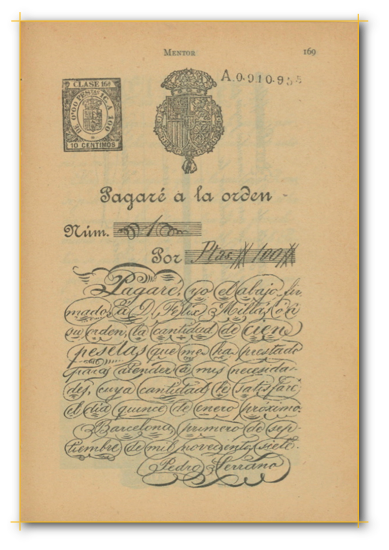 MENTOR 169
CLASE 16ª
10 CENTIMOS
A.0,910,93
Pagaré á la orden
Núm. 1
Por Ptas. 100
Pagaré yo el abajo fir-
mado, á D. Felix Millás, ó á
su orden, la cantidad de cien
pesetas que me ha prestado
para atender á mis necesida-
des, cuya cantidad le satisfaré
el día quince de enero próximo.
Barcelona, primero de sep-
tiembre de mil novecientos siete.
Pedro Serrano